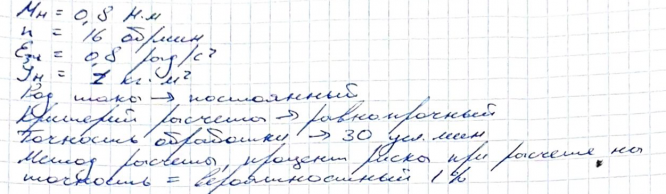 Mн = 0,8 Н.м
n = 16 об/мин
Eзн = 0,8 рад/с²
Jн = 1 кг.м²
Род тока → постоянный
Критерий расчета → равнопрочный
Точность обработки → 30 угл. мин
Метод расчета, процент риска при расчете на
точность = вероятностный 1%